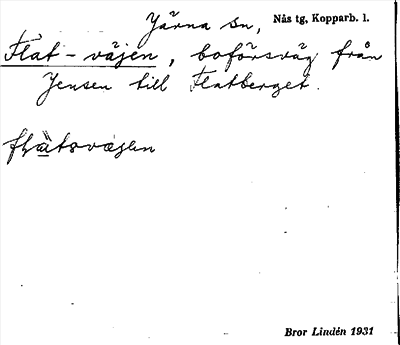 Järna sn, Nås tg, Kopparb. l.
Flat-väjen, boförsväg från
Jensen till Flatberget.
flàtsvægen
Bror Lindén 1931